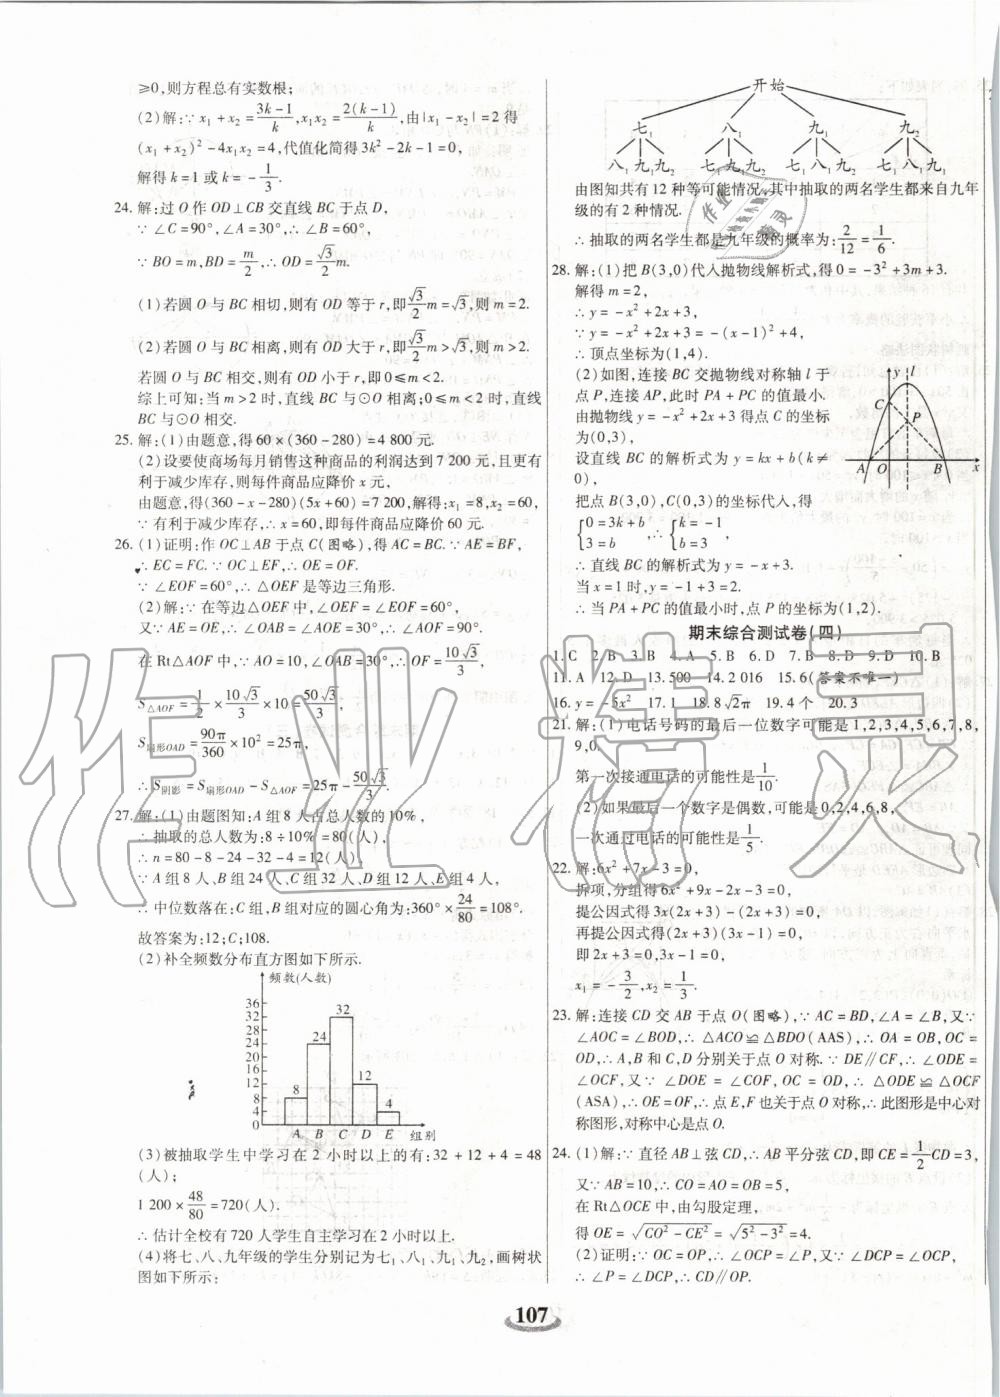 ≥0,则方程总有实数根;
(2)解:∵x₁+x₂=(3k-1)/k,x₁x₂=2(k-1)/k,由|x₁-x₂|=2得
(x₁+x₂)²-4x₁x₂=4,代值化简得3k²-2k-1=0,
解得k=1或k=-1/3.
24.解:过O作OD⊥CB交直线BC于点D,
∵∠C=90°,∠A=30°,∴∠B=60°,
∵BO=m,∴BD=m/2,∴OD=√3/2 m.
(1)若圆O与BC相切,则有OD等于r,即√3/2 m=√3,则m=2.
(2)若圆O与BC相离,则有OD大于r,即√3/2 m>√3,则m>2.
若圆O与BC相交,则有OD小于r,即0≤m<2.
综上可知:当m>2时,直线BC与⊙O相离;0≤m<2时,直线
BC与⊙O相交.
25.解:(1)由题意,得60×(360-280)=4 800元.
(2)设要使商场每月销售这种商品的利润达到7 200元,且更有
利于减少库存,则每件商品应降价x元,
由题意,得(360-x-280)(5x+60)=7 200,解得:x₁=8,x₂=60,
∵有利于减少库存,∴x=60,即每件商品应降价60元.
26.(1)证明:作OC⊥AB于点C(图略),得AC=BC.∵AE=BF,
∴EC=FC.∵OC⊥EF,∴OE=OF.
∵∠EOF=60°,∴△OEF是等边三角形.
(2)解:∵在等边△OEF中,∠OEF=∠EOF=60°,
又∵AE=OE,∴∠A=∠AOE=30°,∴∠AOF=90°.
在Rt△AOF中,∵AO=10,∠OAB=30°,∴OF=10√3/3,
S△AOF=1/2×10√3/3×10=50√3/3,
S扇形OAD=90π/360×10²=25π,
∴S阴影=S扇形OAD-S△AOF=25π-50√3/3.
27.解:(1)由题图知:A组8人占总人数的10%,
∴抽取的总人数为:8÷10%=80(人),
∴n=80-8-24-32-4=12(人),
∵A组8人,B组24人,C组32人,D组12人,E组4人,
∴中位数落在:C组,B组对应的圆心角为:360°×24/80=108°.
故答案为:12;C;108.
(2)补全频数分布直方图如下所示.
频数(人数)
36
32
28
24
20
16
12
8
4
8 24 32 12 4
A B C D E 组别
(3)被抽取学生中学习在2小时以上的有:32+12+4=48
(人);
1 200×48/80=720(人).
∴估计全校有720人学生自主学习在2小时以上.
(4)将七、八、九年级的学生分别记为七₁、八₁、九₁、九₂,画树状
图如下所示:
开始
七₁ 八₁ 九₁ 九₂
八₁九₁九₂ 七₁九₁九₂ 七₁八₁九₂ 七₁八₁九₁
由图知共有12种等可能情况,其中抽取的两名学生都来自九年
级的有2种情况.
∴抽取的两名学生都是九年级的概率为:2/12=1/6.
28.解:(1)把B(3,0)代入抛物线解析式,得0=-3²+3m+3.
解得m=2,
∴y=-x²+2x+3,
∵y=-x²+2x+3=-(x-1)²+4,
∴顶点坐标为(1,4).
(2)如图,连接BC交抛物线对称轴l于
点P,连接AP,此时PA+PC的值最小.
由抛物线y=-x²+2x+3得点C的坐标
为(0,3),
设直线BC的解析式为y=kx+b(k≠
0),
y l
C
P
A O B x
把点B(3,0),C(0,3)的坐标代入,得
{0=3k+b, 3=b ∴{k=-1 b=3
∴直线BC的解析式为y=-x+3.
当x=1时,y=-1+3=2.
∴当PA+PC的值最小时,点P的坐标为(1,2).
期末综合测试卷(四)
1.C 2.B 3.B 4.A 5.B 6.D 7.B 8.D 9.D 10.B
11.A 12.D 13.500 14.2 016 15.6(答案不唯一)
16.y=-5x² 17.1 18.8√2π 19.4个 20.3
21.解:(1)电话号码的最后一位数字可能是1,2,3,4,5,6,7,8,
9,0.
第一次接通电话的可能性是1/10.
(2)如果最后一个数字是偶数,可能是0,2,4,6,8,
一次通过电话的可能性是1/5.
22.解:6x²+7x-3=0,
拆项,分组得6x²+9x-2x-3=0,
提公因式得3x(2x+3)-(2x+3)=0,
再提公因式得(2x+3)(3x-1)=0,
即2x+3=0,3x-1=0,
x₁=-3/2,x₂=1/3.
23.解:连接CD交AB于点O(图略),∵AC=BD,∠A=∠B,又∵
∠AOC=∠BOD,∴△ACO≌△BDO(AAS),∴OA=OB,OC=
OD,∴A、B和C、D分别关于点O对称.∵DE∥CF,∴∠ODE=
∠OCF,又∵∠DOE=∠COF,OC=OD,∴△ODE≌△OCF
(ASA),∴OE=OF,∴点E,F也关于点O对称,∴此图形是中心对
称图形,对称中心是点O.
24.(1)解:∵直径AB⊥弦CD,∴AB平分弦CD,即CE=1/2CD=3,
又∵AB=10,∴CO=AO=OB=5.
在Rt△OCE中,由勾股定理,
得OE=√(CO²-CE²)=√(5²-3²)=4.
(2)证明:∵OC=OP,∴∠OCP=∠P,又∵∠DCP=∠OCP,
∴∠P=∠DCP,∴CD∥OP.
107
作业精灵